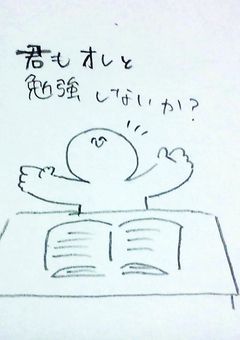 君もオレと
勉強しないか?